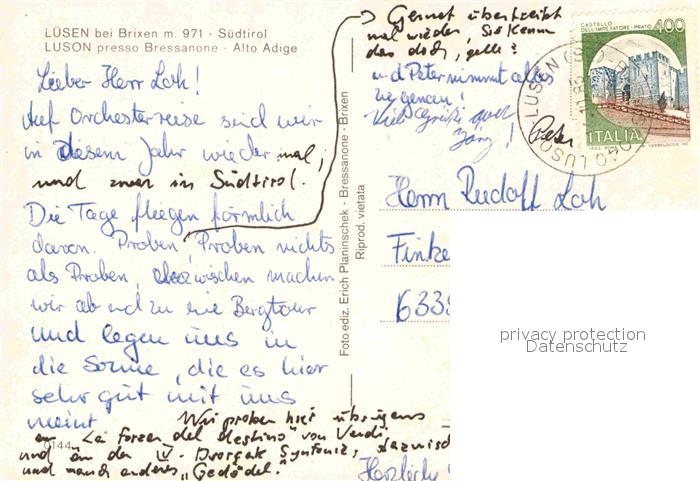 LÜSEN bei Brixen m. 971 - Südtirol
LUSON presso Bressanone - Alto Adige
Lieber Herr Loh!
Auf Orchesterreise sind wir
in diesem Jahr wieder mal,
und zwar in Südtirol.
Die Tage fliegen förmlich
davon. Proben, Proben nichts
als Proben, dazwischen machen
wir ab und zu ne Bergtour
und legen uns in
die Sonne, die es hier
sehr gut mit uns
meint
Wir proben hier übrigens
an "La forza del destino" von Verdi,
und an der Dvorçak Symfonie, dazwisch
und manch anderes "Gedödel."
0144
Herzliche
→ Gernot übertreibt
mal wieder, Sie kennen
das doch, gelle?
und Peter nimmt alles
Viele Grüße auch
Peter
Foto ediz. Erich Planinschek - Bressanone - Brixen
Riprod. vietata
CASTELLO
DELL'IMPERATORE - PRATO
400
ITALIA
LUSON
LÜSEN
Herrn Rudolf Loh
Finke
6338
privacy protection
Datenschutz